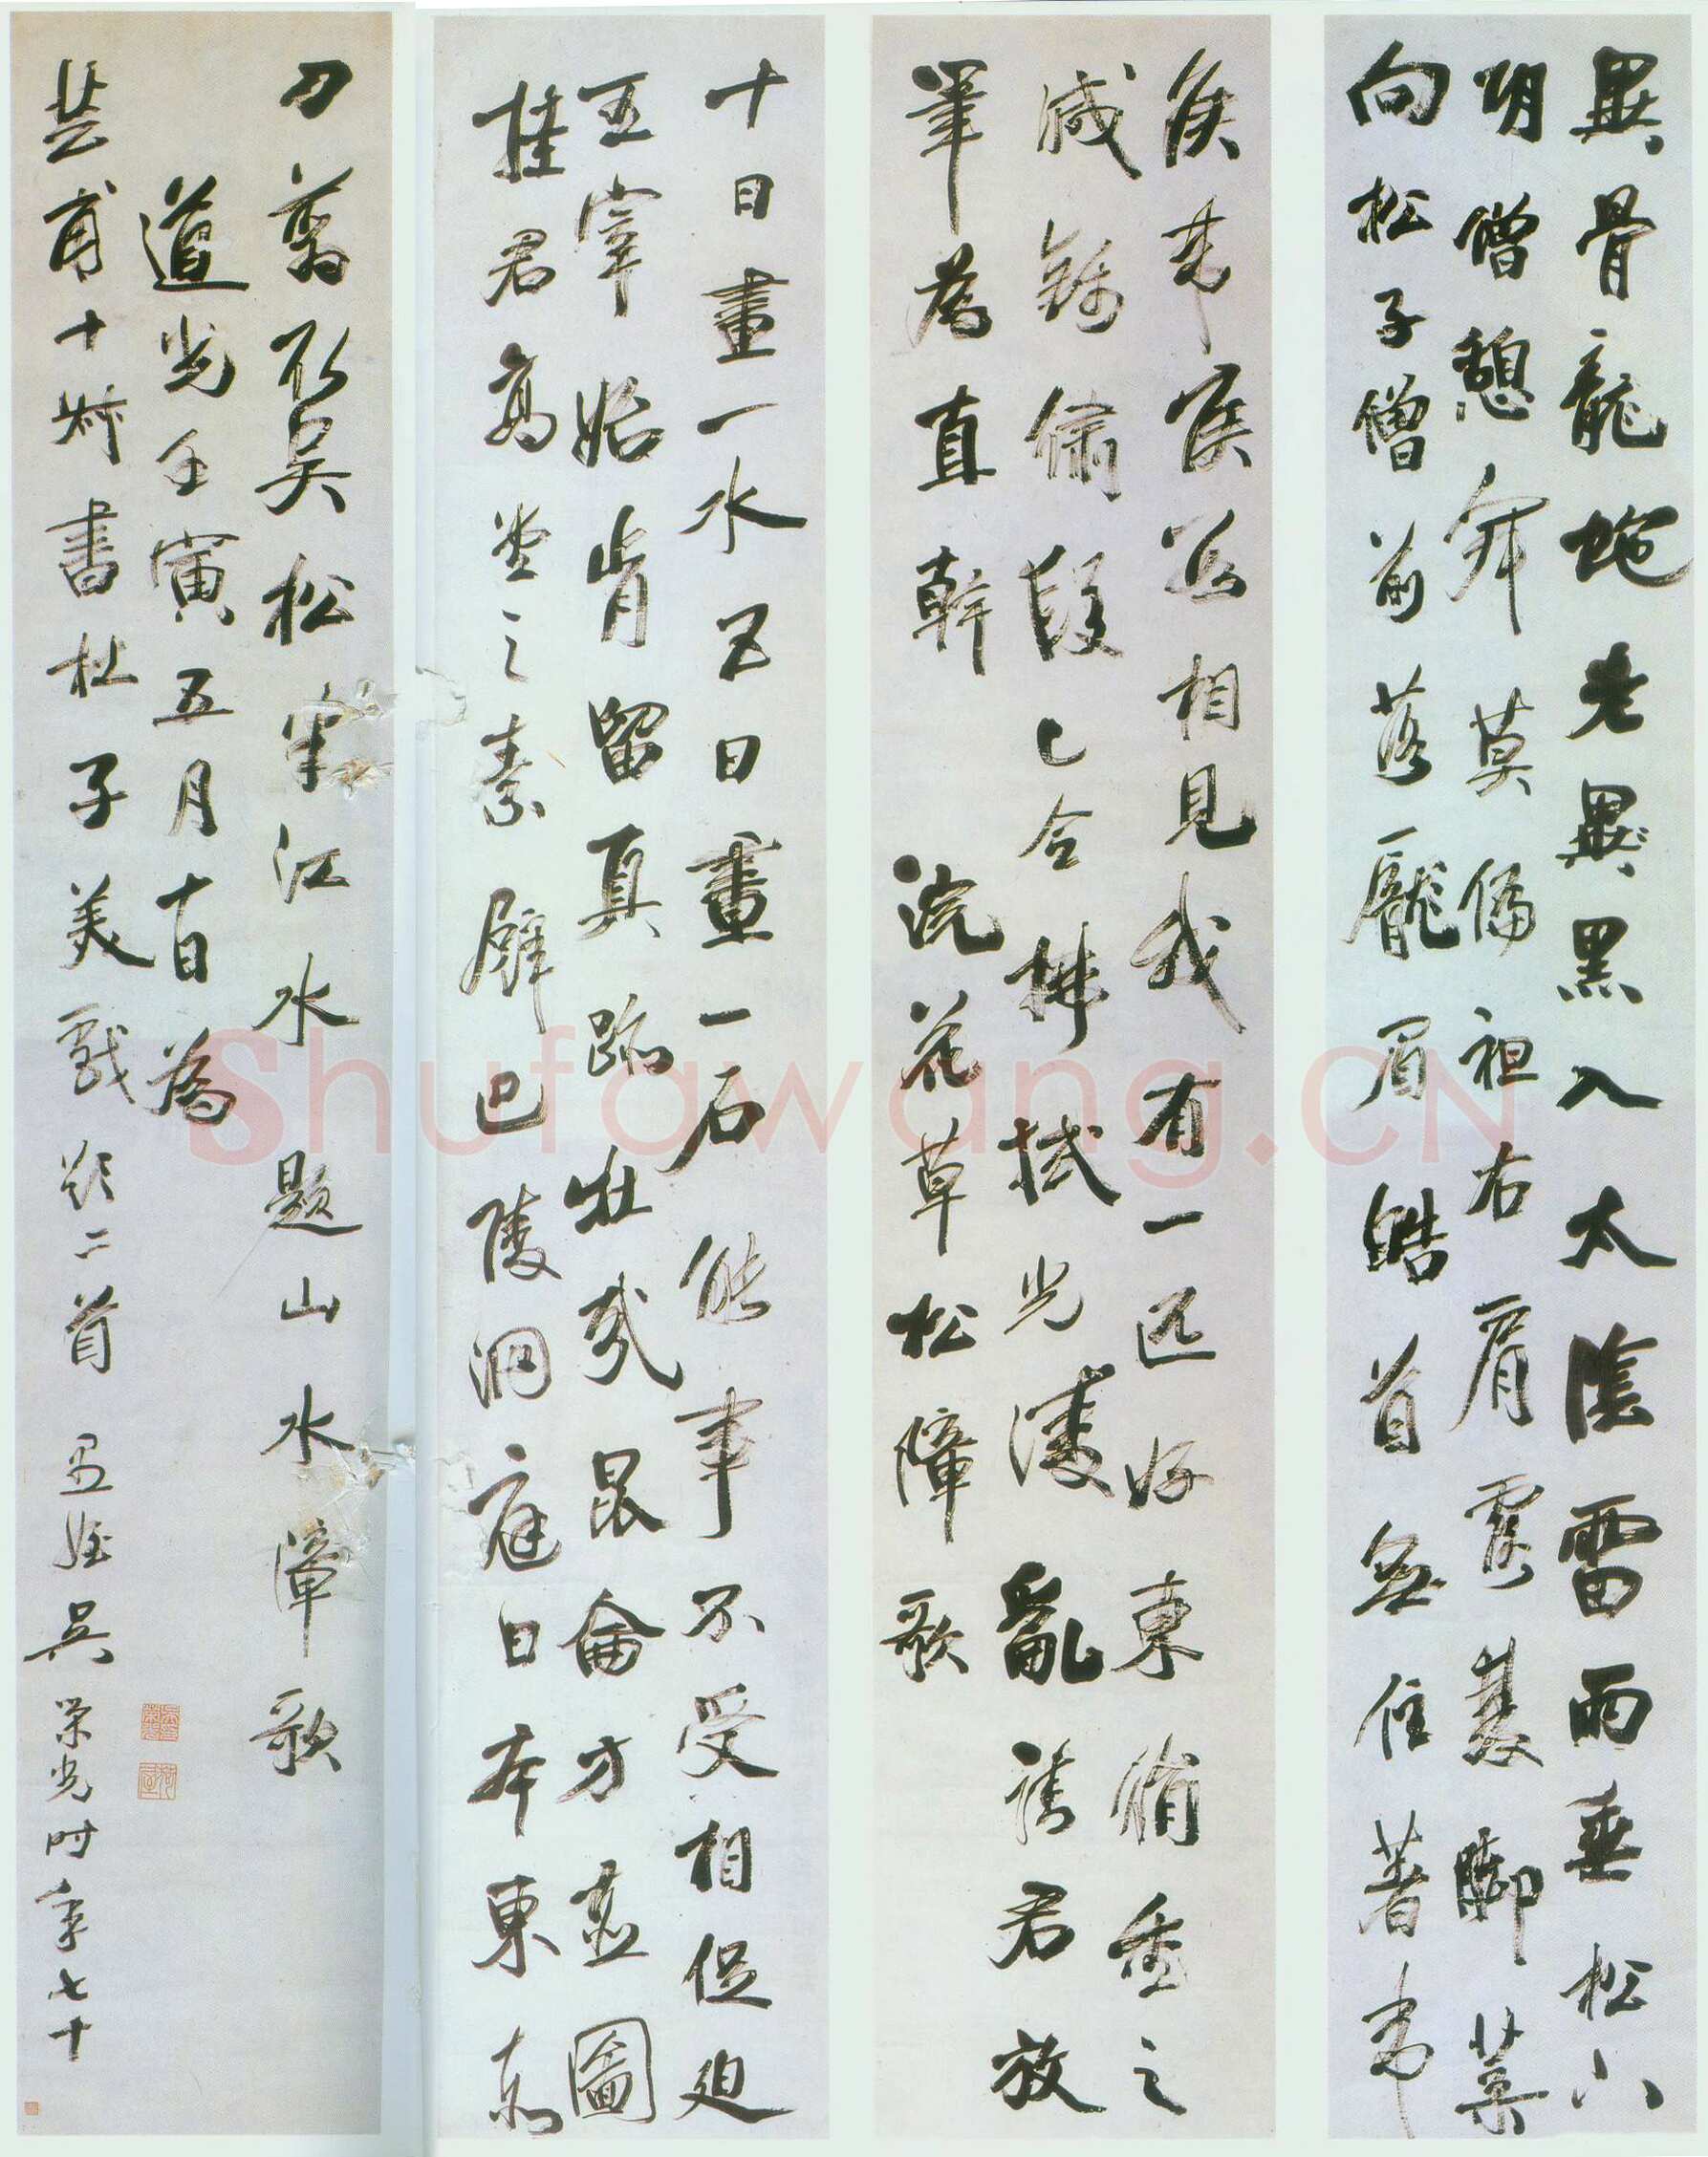 骨龍虵老黑入太陰雷雨垂松
僧憩莫偏袒右肩露雙脚葉
向松子僧前落龐眉皓首無住著韋
侯韋侯數相見我有一匹好東絹重之
減錦繡段已令拂拭光凌亂請君放
筆為直幹 浣花草松障歌
十日畫一水五日畫一石能事不受相促迫
王宰始肯留真跡壯哉昆侖方壺圖
挂君高堂之素壁巴陵洞庭日本東
刀翦取吳松半江水 題山水障歌
道光壬寅五月日為
芸甫十叔書杜子美戲題二首 愚姪吳榮光時年七十
Shufawang.CN